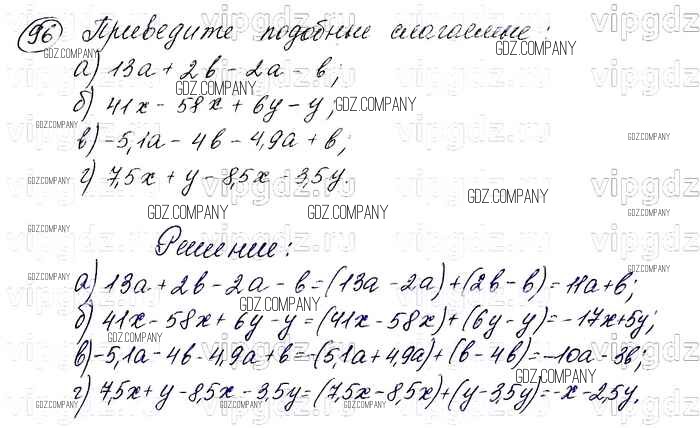 96 Приведите подобные слагаемые:
а) 13a + 2b - 2a - b;
б) 41x - 58x + 6y - y;
в) -5,1a - 4b - 4,9a + b;
г) 7,5x + y - 8,5x - 3,5y.
Решение:
а) 13a + 2b - 2a - b = (13a - 2a) + (2b - b) = 11a + b;
б) 41x - 58x + 6y - y = (41x - 58x) + (6y - y) = -17x + 5y;
в) -5,1a - 4b - 4,9a + b = -(5,1a + 4,9a) + (b - 4b) = -10a - 3b;
г) 7,5x + y - 8,5x - 3,5y = (7,5x - 8,5x) + (y - 3,5y) = -x - 2,5y.